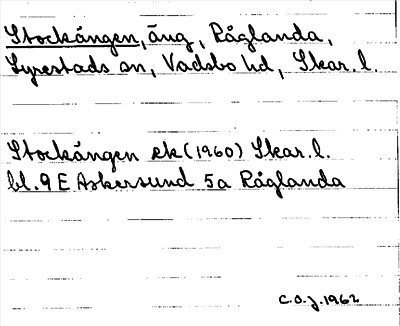 Stockängen, äng, Råglanda,
Lyrestads sn, Vadsbo hd, Skar. l.
Stockängen ek (1960) Skar. l.
bl. 9 E Askersund 5a Råglanda
C.O.J. 1962